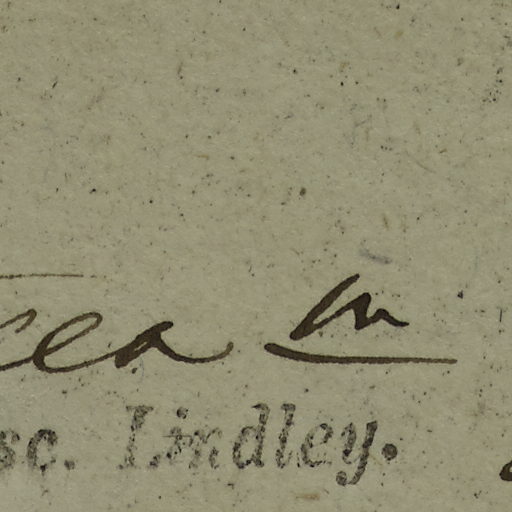 cea m
sc. Lindley.